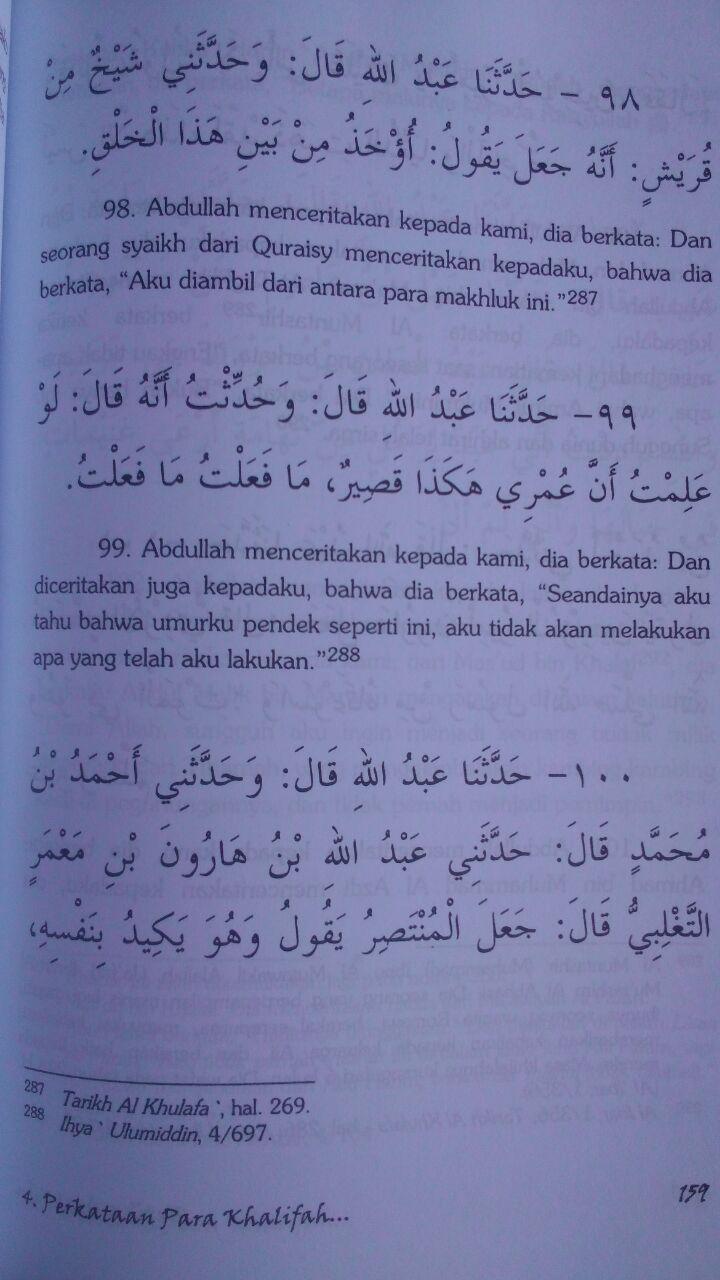 ٩٨ – حَدَّثَنَا عَبْدُ اللهِ قَالَ: وَحَدَّثَنِي شَيْخٌ مِنْ
قُرَيْشٍ: أَنَّهُ جَعَلَ يَقُولُ: أُؤْخَذُ مِنْ بَيْنِ هَذَا الْخَلْقِ.
98. Abdullah menceritakan kepada kami, dia berkata: Dan
seorang syaikh dari Quraisy menceritakan kepadaku, bahwa dia
berkata, “Aku diambil dari antara para makhluk ini.”287
٩٩ – حَدَّثَنَا عَبْدُ اللهِ قَال: وَحُدِّثْتُ أَنَّهُ قَالَ: لَوْ
عَلِمْتُ أَنَّ عُمْرِي هَكَذَا قَصِيرٌ، مَا فَعَلْتُ مَا فَعَلْتُ.
99. Abdullah menceritakan kepada kami, dia berkata: Dan
diceritakan juga kepadaku, bahwa dia berkata, “Seandainya aku
tahu bahwa umurku pendek seperti ini, aku tidak akan melakukan
apa yang telah aku lakukan.”288
١٠٠ – حَدَّثَنَا عَبْدُ اللهِ قَالَ: وَحَدَّثَنِي أَحْمَدُ بْنُ
مُحَمَّدٍ قَالَ: حَدَّثَنِي عَبْدُ اللهِ بْنُ هَارُونَ بْنِ مَعْمَرٍ
التَّغْلِبِيُّ قَالَ: جَعَلَ الْمُنْتَصِرُ يَقُولُ وَهُوَ يَكِيدُ بِنَفْسِهِ،
287 Tarikh Al Khulafa`, hal. 269.
288 Ihya` Ulumiddin, 4/697.
4. Perkataan Para Khalifah...
159